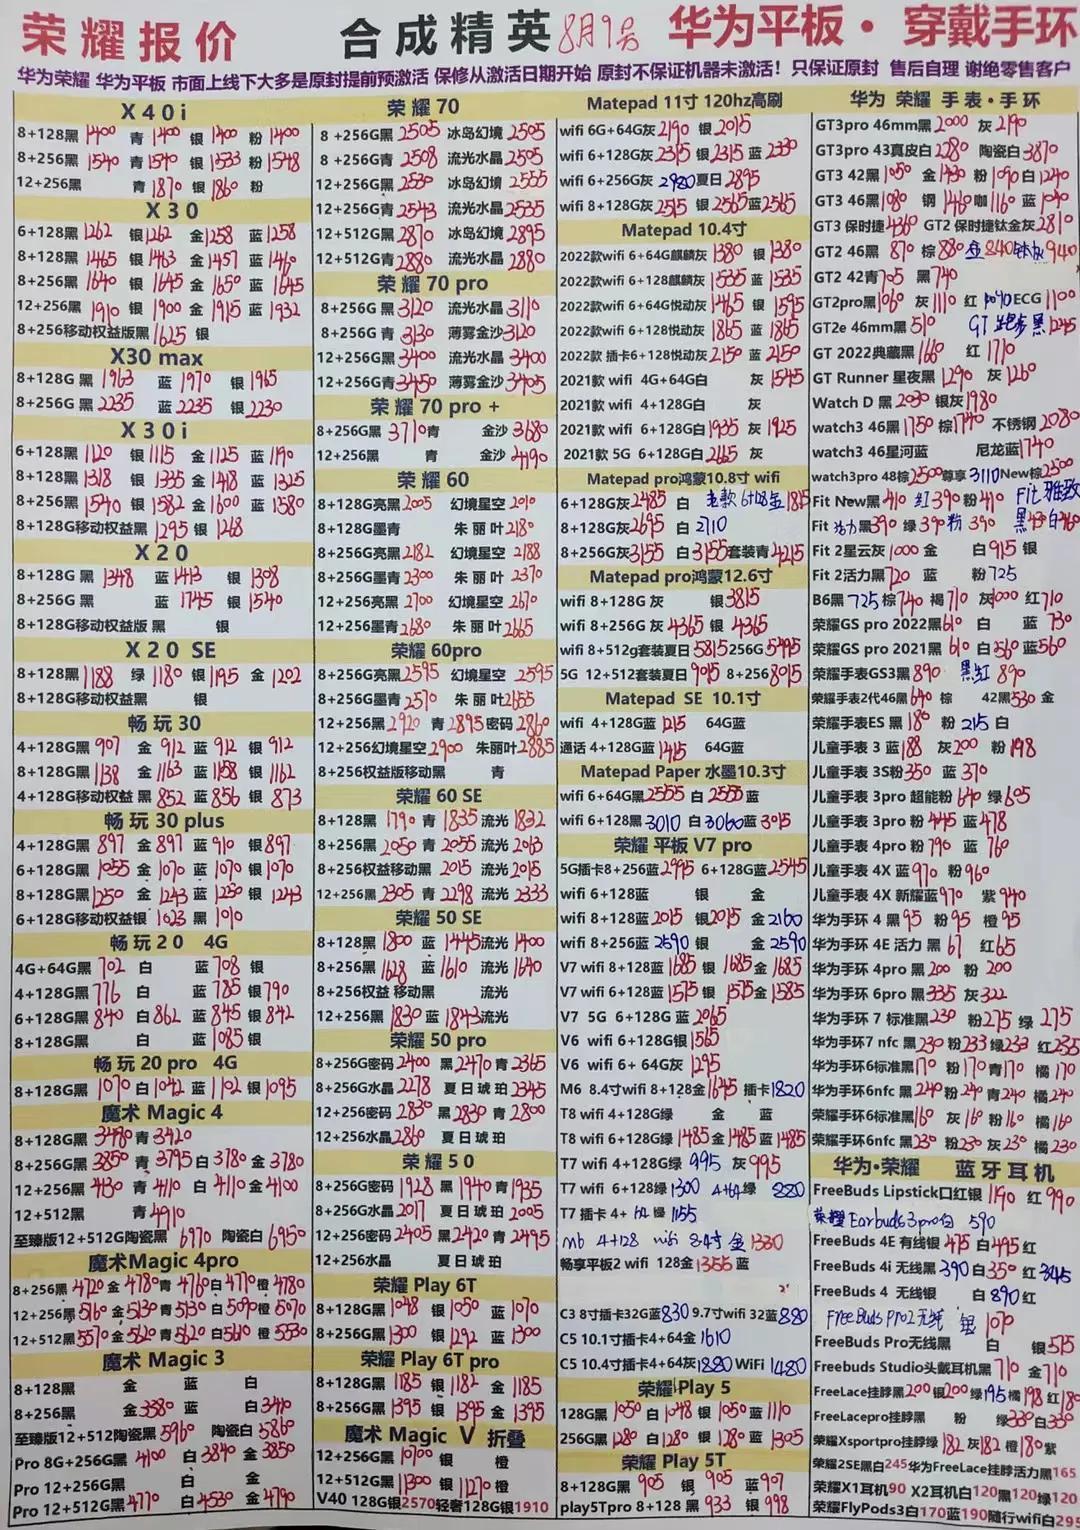 荣耀报价 合成精英 8月9号 华为平板· 穿戴手环
华为荣耀 华为平板 市面上线下大多是原封提前预激活 保修从激活日期开始 原封不保证机器未激活！只保证原封 售后自理 谢绝零售客户
X40i
8+128黑1400 青1400 银1400 粉1400
8+256黑1540 青1540 银1533 粉1548
12+256黑 青1870 银1860 粉
X30
6+128黑1262 银1262 金1258 蓝1258
8+128黑1465 银1463 金1457 蓝1460
8+256黑1640 银1645 金1650 蓝1645
12+256黑1910 银1900 金1915 蓝1932
8+256移动权益版黑1625 银
X30 max
8+128G 黑1963 蓝1970 银1965
8+256G 黑2235 蓝2235 银2230
X30i
6+128黑1120 银1115 金1125 蓝1190
8+128黑1318 银1335 金1418 蓝1325
8+256黑1540 银1582 金1600 蓝1580
8+128G移动权益黑1295 银1268
X20
8+128G 黑1348 蓝1413 银1398
8+256G 黑 蓝1745 银1540
8+128G移动权益版 黑 银
X20 SE
8+128黑1188 绿1180 银1195 金1202
8+128G移动权益黑 银
畅玩30
4+128G黑907 金912 蓝912 银912
8+128G黑1138 金1163 蓝1158 银1162
4+128G移动权益 黑852 蓝856 银873
畅玩30 plus
4+128G黑897 金897 蓝910 银897
6+128G黑1055 金1070 蓝1070 银1070
8+128G黑1250 金1243 蓝1250 银1243
6+128G移动权益银1023 黑1010
畅玩20 4G
4G+64G黑702 白 蓝708 银
4+128G黑776 白 蓝785 银790
6+128G黑840 白862 蓝845 银842
8+128G黑 白 蓝1085 银
畅玩20 pro 4G
8+128G黑1070 白1042 蓝1102 银1095
魔术 Magic 4
8+128G黑3490 青3420
8+256G黑3850 青3795 白3780 金3780
12+256黑4130 青4110 白4110 金4100
12+512黑 青4910
至臻版12+512G陶瓷黑6970 陶瓷白6950
魔术Magic 4pro
8+256黑4720 金4780 青4760 白4770 橙4780
12+256黑5160 金5130 青5130 白5090 橙5070
12+512黑5570 金5620 青5620 白5610 橙5530
魔术 Magic 3
8+128黑 金 蓝 白
8+256黑 金3580 蓝 白3440
至臻版12+512陶瓷黑5960 陶瓷白5860
Pro 8G+256G黑4100 白3840 金3850
Pro 12+256G黑 白 金
Pro 12+512G黑4770 白4530 金4790
荣耀70
8+256G黑2505 冰岛幻境2505
8+256G青2508 流光水晶2505
12+256G黑2530 冰岛幻境2555
12+256G青2543 流光水晶2535
12+512G黑2870 冰岛幻境2895
12+512G青2880 流光水晶2880
荣耀70 pro
8+256G黑3120 流光水晶3110
8+256G青3130 薄雾金沙3120
12+256G黑3400 流光水晶3400
12+256G青3450 薄雾金沙3405
荣耀70 pro +
8+256G黑3710 青 金沙3680
12+256黑 青 金沙4190
荣耀60
8+128G亮黑2005 幻境星空2010
8+128G墨青 朱丽叶2180
8+256G亮黑2182 幻境星空2188
8+256G墨青2300 朱丽叶2370
12+256亮黑2700 幻境星空2670
12+256墨青2680 朱丽叶2665
荣耀60pro
8+256G亮黑2595 幻境星空2595
8+256G墨青2570 朱丽叶2655
12+256黑2920 青2895 密码2860
12+256幻境星空2900 朱丽叶2885
8+256权益版移动黑 青
荣耀60 SE
8+128黑1790 青1835 流光1832
8+256黑2050 青2055 流光2013
8+256权益移动黑2015 流光2015
12+256黑2305 青2298 流光2333
荣耀50 SE
8+128黑1800 蓝1445 流光1400
8+256黑1628 蓝1610 流光1640
8+256权益 移动黑 流光
12+256黑1830 蓝1843 流光
荣耀50 pro
8+256G密码2400 黑2470 青2365
8+256G水晶2278 夏日琥珀2345
12+256密码2830 黑2830 青2800
12+256水晶2860 夏日琥珀
荣耀50
8+256G密码1928 黑1940 青1935
8+256G水晶2017 夏日琥珀2005
12+256密码2405 黑2420 青2495
12+256水晶 夏日琥珀
荣耀 Play 6T
8+128G黑1048 银1050 蓝1070
8+256G黑1300 银1292 蓝1300
荣耀 Play 6T pro
8+128G黑1185 银1182 金1185
8+256G黑1395 银1395 金1395
魔术 Magic V 折叠
12+256G黑10700 银 橙
12+512G黑11300 银11270 橙
V40 128G银2570轻奢128G银1910
Matepad 11寸 120hz高刷
wifi 6G+64G灰2190 银2015
wifi 6+128G灰2315 银2315 蓝2330
wifi 6+256G灰2920 夏日2895
wifi 8+128G灰2515 银2565 蓝2565
Matepad 10.4寸
2022款wifi 6+64G麒麟灰1380 银1380
2022款wifi 6+128麒麟灰1535 蓝1535
2022款wifi 6+64G悦动灰1465 银1595
2022款wifi 6+128悦动灰1865 蓝1865
2022款 插卡6+128悦动灰2150 蓝2150
2021款 wifi 4G+64G白 灰1545
2021款 wifi 4+128G白 灰
2021款 wifi 6+128G白1935 灰1925
2021款 5G 6+128G白2665 灰
Matepad pro鸿蒙10.8寸 wifi
6+128G灰2485 白 老款6+128金1815
8+128G灰2695 白2710
8+256G灰3155 白3155 套装青4215
Matepad pro鸿蒙12.6寸
wifi 8+128G 灰 银3815
wifi 8+256G 灰4365 银4365
wifi 8+512g套装夏日5815 256G5495
5G 12+512套装夏日9015 8+256 8015
Matepad SE 10.1寸
wifi 4+128G蓝1215 64G蓝
通话 4+128G蓝1415 64G蓝
Matepad Paper 水墨10.3寸
wifi 6+64G黑2555 白2555 蓝
wifi 6+128黑3010 白3060 蓝3015
荣耀 平板 V7 pro
5G插卡8+256蓝2995 6+128G蓝2545
wifi 6+128蓝 银 金
wifi 8+128蓝2015 银2015 金2160
wifi 8+256蓝2590 银 金2590
V7 wifi 8+128蓝1685 银1685 金1685
V7 wifi 6+128蓝1575 银1575 金1585
V7 5G 6+128G 蓝2065
V6 wifi 6+128G银1565
V6 wifi 6+ 64G灰1295
M6 8.4寸wifi 8+128金1645 插卡1820
T8 wifi 4+128G绿 金 蓝
T8 wifi 6+128G绿1485 金1485 蓝1485
T7 wifi 4+128G绿995 灰995
T7 wifi 6+128绿1300 4+64绿880
T7 插卡 4+ 64 绿1155
M6 4+128 wifi 8.4寸 金1330
畅享平板2 wifi 128金1355 蓝
C3 8寸插卡32G蓝830 9.7寸wifi 32蓝880
C5 10.1寸插卡4+64金1610
C5 10.4寸插卡4+64灰1880 WiFi 1480
荣耀 Play 5
128G黑1050 白1048 银1050 蓝1110
256G黑1280 白1280 银1280 蓝1305
荣耀 Play 5T
8+128G黑905 银905 蓝907
play5Tpro 8+128 黑933 银998
华为 荣耀 手表·手环
GT3pro 46mm黑2000 灰2190
GT3pro 43真皮白2280 陶瓷白3870
GT3 42黑1050 金1430 粉1090 白1240
GT3 46黑1080 钢1460 咖1160 蓝1040
GT3 保时捷4360 GT2 保时捷钛金灰2810
GT2 46黑870 棕880 金840 钛灰940
GT2 42青705 黑740
GT2pro黑1060 灰1110 红1040 ECG1100
GT2e 46mm黑510 GT 跑步 黑1245
GT 2022典藏黑1660 红1710
GT Runner 星夜黑1290 灰1260
Watch D 黑2030 银灰1980
watch3 46黑1750 棕1740 不锈钢2080
watch3 46星河蓝 尼龙蓝1740
watch3pro 48棕2500 尊享3110 New棕2500
Fit New黑410 红390 粉410 Fit雅致
Fit 活力黑390 绿390 粉390 黑430 白460
Fit 2星云灰1000 金 白915 银
Fit 2活力黑720 蓝 粉725
B6黑725 棕740 褐710 灰1000 红710
荣耀GS pro 2022黑610 白 蓝730
荣耀GS pro 2021黑610 白560 蓝560
荣耀手表GS3黑890 黑红890
荣耀手表2代46黑640 棕 42黑530 金
荣耀手表ES 黑180 粉215 白
儿童手表 3 蓝188 灰200 粉198
儿童手表 3S粉350 蓝370
儿童手表 3pro 超能粉640 绿605
儿童手表 3pro 粉445 蓝478
儿童手表 4pro 粉790 蓝760
儿童手表 4X 蓝970 粉960
儿童手表 4X 新耀蓝970 紫940
华为手环 4 黑95 粉95 橙95
华为手环 4E 活力 黑67 红65
华为手环 4pro 黑200 粉200
华为手环 6pro 黑335 灰322
华为手环 7 标准黑230 粉275 绿275
华为手环7 nfc 黑230 粉233 绿233 红235
华为手环6标准黑170 粉170 青170 橘170
华为手环6nfc 黑240 粉240 青240 橘240
荣耀手环6标准黑160 灰160 粉160 橘160
荣耀手环6nfc 黑230 粉230 灰230 橘230
华为·荣耀 蓝牙耳机
FreeBuds Lipstick口红银1190 红990
荣耀Earbuds3pro白 590
FreeBuds 4E 有线银475 白495 红
FreeBuds 4i 无线黑390 白350 红345
FreeBuds 4 无线银 白890 红
FreeBuds Pro2无线 银1070
FreeBuds Pro无线黑 白 银575
Freebuds Studio头戴耳机黑710 金710
FreeLace挂脖黑200 银200 绿195 橘198 红180
FreeLacepro挂脖黑 粉 绿330 白330
荣耀Xsportpro挂脖绿182 灰182 橙180 紫
荣耀2SE黑白245华为FreeLace挂脖活力黑165
荣耀X1耳机90 X2耳机白120黑120绿120
荣耀FlyPods3白170蓝190随行wifi白295